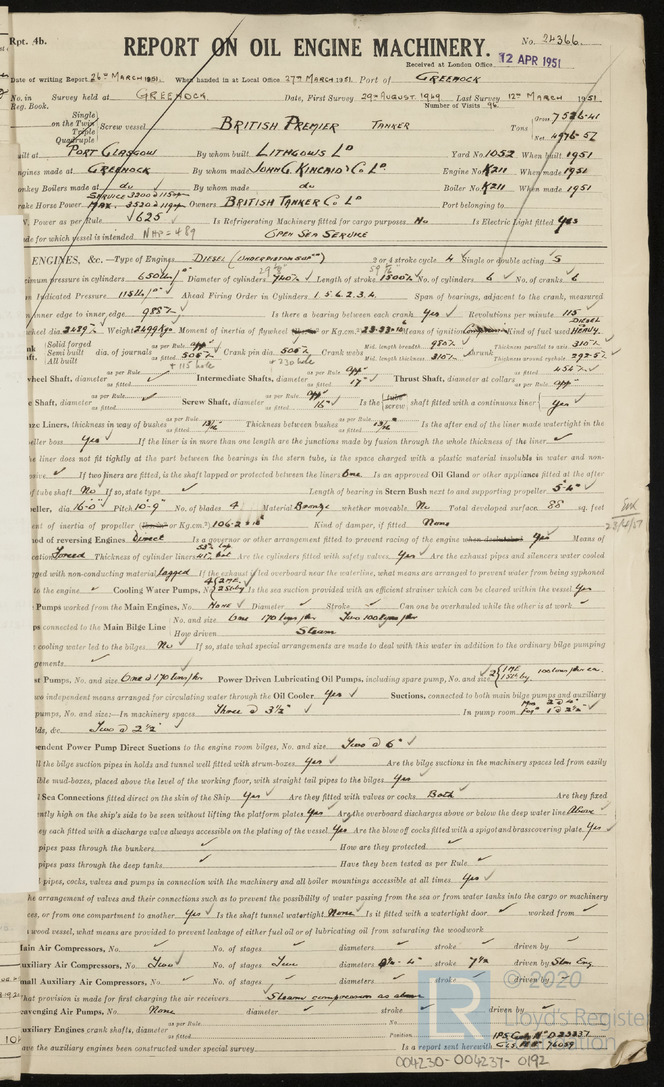 Rpt. 4b.
REPORT ON OIL ENGINE MACHINERY.
No. 24366.
Received at London Office 12 APR 1951
Date of writing Report 26th MARCH 1951. When handed in at Local Office 27th MARCH 1951. Port of GREENOCK
No. in Reg. Book. Survey held at GREENOCK Date, First Survey 29th AUGUST 1949 Last Survey 12th MARCH 1951
Number of Visits 96
on the Single Twin Triple Quadruple Screw vessel BRITISH PREMIER TANKER Tons Gross 7526.41 Net 4976.57
uilt at PORT GLASGOW By whom built LITHGOWS LD Yard No. 1052 When built 1951
ngines made at GREENOCK By whom made JOHN G. KINCAID & CO LD. Engine No. K211 When made 1951
nkey Boilers made at do By whom made do Boiler No. K211 When made 1951
rake Horse Power SERVICE 3200 @ 115 MAX. 3520 @ 119 Owners BRITISH TANKER CO LD Port belonging to
. Power as per Rule 625 Is Refrigerating Machinery fitted for cargo purposes No Is Electric Light fitted Yes
de for which vessel is intended NHP = 489 OPEN SEA SERVICE
ENGINES, &c.—Type of Engines DIESEL 2 or 4 stroke cycle 4 Single or double acting S
ximum pressure in cylinders 650 Diameter of cylinders 740 Length of stroke 1500 No. of cylinders 6 No. of cranks 6
n Indicated Pressure 115 Ahead Firing Order in Cylinders 1.5.6.2.3.4. Span of bearings, adjacent to the crank, measured
m inner edge to inner edge. 985 Is there a bearing between each crank Yes Revolutions per minute 115
wheel dia. 2489 Weight 2499 Kgs Moment of inertia of flywheel or Kg.cm.² Means of ignition Kind of fuel used DIESEL HEAVY.
Solid forged Semi built All built dia. of journals as per Rule app as fitted 505 Crank pin dia. 505 Crank webs Mid. length breadth 980 Mid. length thickness 310 shrunk Thickness parallel to axis 310 Thickness around eyehole 292.5
+ 115 hole + 230 hole
wheel Shaft, diameter as per Rule as fitted Intermediate Shafts, diameter as per Rule app as fitted 17" Thrust Shaft, diameter at collars as per Rule app as fitted 454
e Shaft, diameter as per Rule as fitted Screw Shaft, diameter as per Rule app as fitted 16" Is the screw shaft fitted with a continuous liner Yes
ze Liners, thickness in way of bushes as per Rule as fitted 13/16 Thickness between bushes as per Rule as fitted 13/16 Is the after end of the liner made watertight in the
eller boss Yes If the liner is in more than one length are the junctions made by fusion through the whole thickness of the liner
he liner does not fit tightly at the part between the bearings in the stern tube, is the space charged with a plastic material insoluble in water and non-
sive If two liners are fitted, is the shaft lapped or protected between the liners One Is an approved Oil Gland or other appliance fitted at the after
of tube shaft No If so, state type Length of bearing in Stern Bush next to and supporting propeller 5'-4"
eller, dia. 16'-0" Pitch 10'-9" No. of blades 4 Material Bronze whether moveable No Total developed surface 88 sq. feet
nt of inertia of propeller or Kg.cm.² 106.2 x 10⁶ Kind of damper, if fitted None
hod of reversing Engines Direct Is a governor or other arrangement fitted to prevent racing of the engine Yes Means of
cation Forced Thickness of cylinder liners Are the cylinders fitted with safety valves Yes Are the exhaust pipes and silencers water cooled
gged with non-conducting material Lagged If the exhaust is led overboard near the waterline, what means are arranged to prevent water from being syphoned
to the engine Cooling Water Pumps, No. Is the sea suction provided with an efficient strainer which can be cleared within the vessel Yes
Pumps worked from the Main Engines, No. None Diameter Stroke Can one be overhauled while the other is at work
ps connected to the Main Bilge Line No. and size One 170 tons/hr Two 100 tons/hr
How driven Steam
cooling water led to the bilges No If so, state what special arrangements are made to deal with this water in addition to the ordinary bilge pumping
gements
st Pumps, No. and size One @ 170 tons/hr Power Driven Lubricating Oil Pumps, including spare pump, No. and size 2 100 tons/hr ea.
wo independent means arranged for circulating water through the Oil Cooler Yes Suctions, connected to both main bilge pumps and auxiliary
pumps, No. and size:—In machinery spaces Three @ 3½" In pump room
lds, &c. Two @ 2½"
pendent Power Pump Direct Suctions to the engine room bilges, No. and size Two @ 6"
ll the bilge suction pipes in holds and tunnel well fitted with strum-boxes Yes Are the bilge suctions in the machinery spaces led from easily
ible mud-boxes, placed above the level of the working floor, with straight tail pipes to the bilges Yes
Sea Connections fitted direct on the skin of the Ship Yes Are they fitted with valves or cocks Both Are they fixed
ently high on the ship's side to be seen without lifting the platform plates Yes Are the overboard discharges above or below the deep water line Above
ey each fitted with a discharge valve always accessible on the plating of the vessel Yes Are the blow off cocks fitted with a spigot and brass covering plate Yes
pipes pass through the bunkers How are they protected
pipes pass through the deep tanks Have they been tested as per Rule
l pipes, cocks, valves and pumps in connection with the machinery and all boiler mountings accessible at all times Yes
he arrangement of valves and their connections such as to prevent the possibility of water passing from the sea or from water tanks into the cargo or machinery
ces, or from one compartment to another Yes Is the shaft tunnel watertight None Is it fitted with a watertight door worked from
wood vessel, what means are provided to prevent leakage of either fuel oil or of lubricating oil from saturating the woodwork
Main Air Compressors, No. No. of stages diameters stroke driven by
uxiliary Air Compressors, No. Two No. of stages Two diameters stroke 7½ driven by Stm Eng
mall Auxiliary Air Compressors, No. No. of stages diameters stroke driven by
hat provision is made for first charging the air receivers Steam compressors as above
cavenging Air Pumps, No. None diameter stroke driven by
uxiliary Engines crank shafts, diameter as per Rule as fitted No. Position
ave the auxiliary engines been constructed under special survey Is a report sent herewith
© 2020
Lloyd's Register
004230-004237-0192